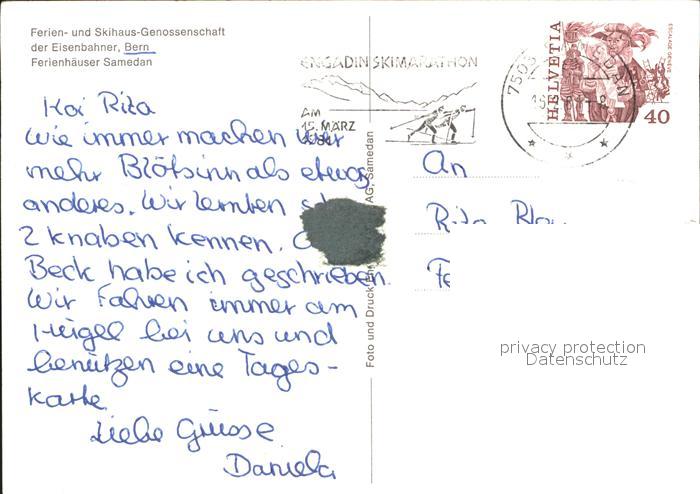 Ferien- und Skihaus-Genossenschaft
der Eisenbahner, Bern
Ferienhäuser Samedan
ENGADIN SKIMARATHON
AM
15. MÄRZ
7503
HELVETIA
ESCALADE GENÈVE
40
Hoi Rita
Wie immer machen wir
mehr Blötsinn als etwas
anderes. Wir lernten
2 knaben kennen.
Beck habe ich geschrieben.
Wir Fahren immer am
Hügel bei uns und
benützen eine Tages-
karte.
Liebe Grüsse
Daniela
An
Rita
Foto und Druck AG, Samedan
privacy protection
Datenschutz